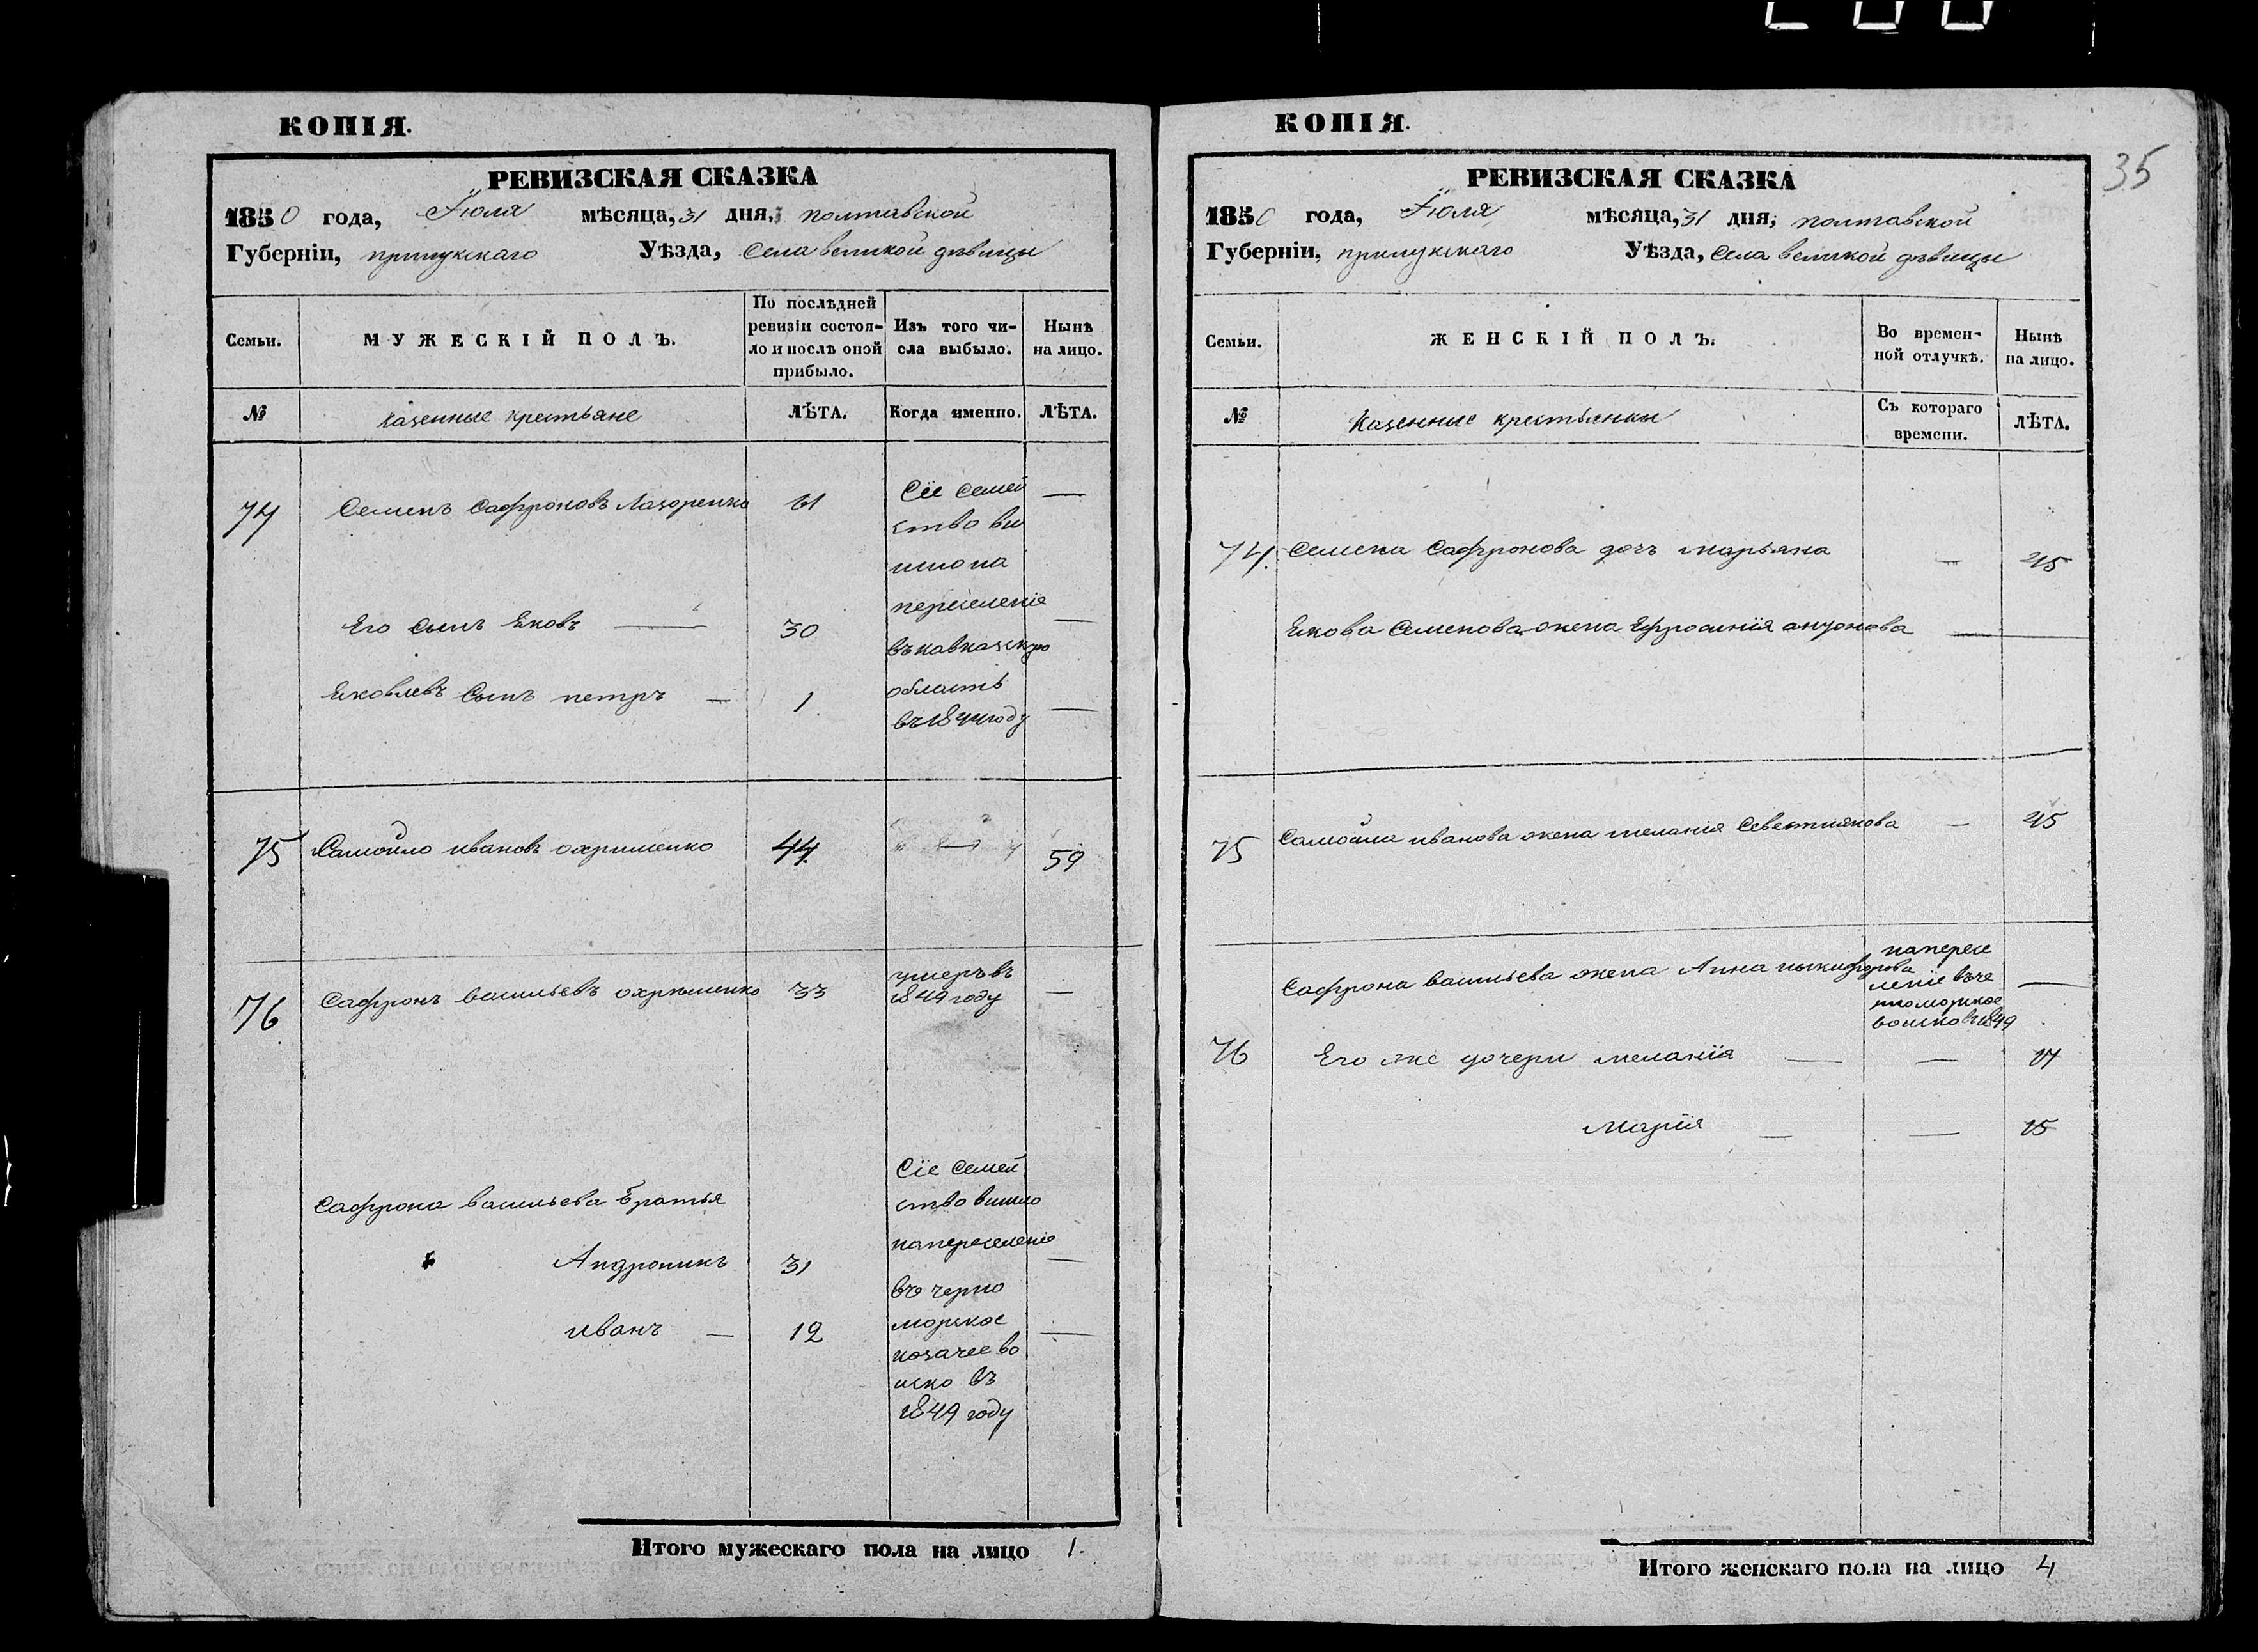 КОПІЯ.
РЕВИЗСКАЯ СКАЗКА
1850 года, Іюля мѣсяца, 31 дня, полтавской
Губерніи, прилукскаго Уѣзда, Села великой дѣвицы
Семьи.
МУЖЕСКІЙ ПОЛЪ.
По послѣдней
ревизіи состоя-
ло и послѣ оной
прибыло.
Изъ того чи-
сла выбыло.
Нынѣ
на лицо.
№
казенные крестьяне
ЛѢТА.
Когда именно.
ЛѢТА.
74 Семенъ Сафроновъ Лазоренко 61 —
Сіе семей
ство вы
шло на
переселеніе
въ кавказскую
область
въ 1844 году
Его сынъ Яковъ — 30 —
Яковлевъ Сынъ петръ — 1 —
75 Самойло ивановъ охрименко 44 — 59
76 Сафронъ васильевъ охрименко 33 —
умеръ въ
1849 году
Сафрона васильева братья
Андроникъ 31 —
иванъ — 12 —
Сіе семей
ство вишло
на переселеніе
въ черно
морское
козачее во
иско въ
1849 году
Итого мужескаго пола на лицо 1.
КОПІЯ.
35
РЕВИЗСКАЯ СКАЗКА
1850 года, Іюля мѣсяца, 31 дня, полтавской
Губерніи, прилукскаго Уѣзда, Села великой дѣвицы
Семьи.
ЖЕНСКІЙ ПОЛЪ.
Во времен-
ной отлучкѣ.
Нынѣ
на лицо.
№
Казенные крестьянки
Съ котораго
времени.
ЛѢТА.
74. Семена Сафронова дочь марьяна — 45
Якова Семенова жена Ефросинія —
75 Самойла иванова жена мелания — 45
Сафрона васильева жена Анна никифорова —
на пересе
леніе въ че
рноморское
воиско въ 1849
76 Его же дочери меланія — — 17
Марія — — 15
Итого женскаго пола на лицо 4